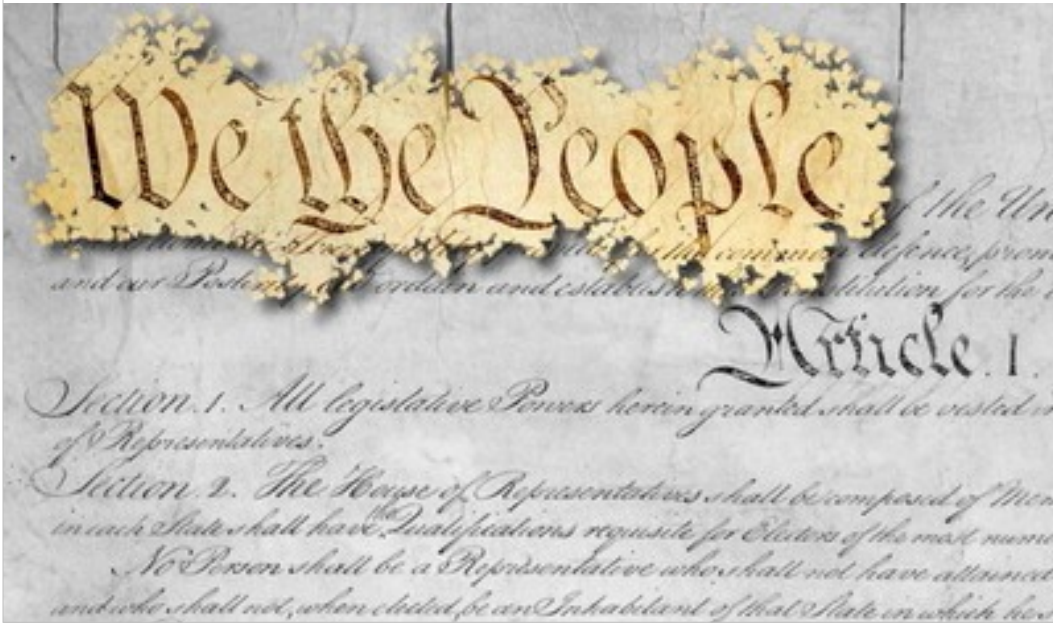 We the People
of the Un
common defence, prom
and our Posterity, do ordain and establish this Constitution for the
Article. I.
Section. 1. All legislative Powers herein granted shall be vested in
of Representatives.
Section. 2. The House of Representatives shall be composed of Mem
in each State shall have the Qualifications requisite for Electors of the most nume
No Person shall be a Representative who shall not have attained
and who shall not, when elected, be an Inhabitant of that State in which he s